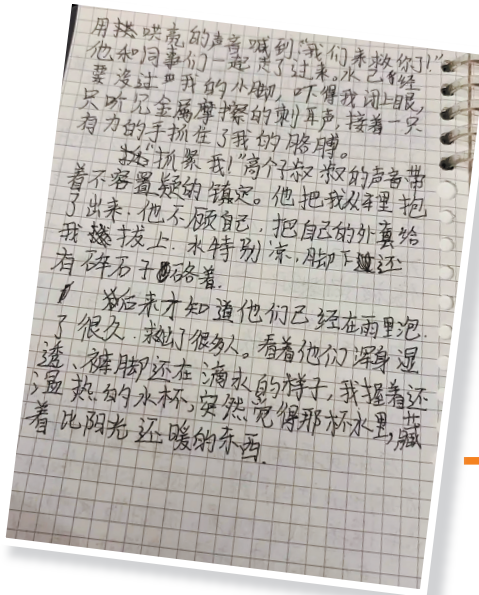 用洪亮的声音喊到:“我们来救你了!”
他和同事们一起走了过来。水已经
要没过我的小脚,吓得我闭上眼,
只听见金属摩擦的刺耳声,接着一只
有力的手抓住了我的胳膊。
“抓紧我!”高个子叔叔的声音带
着不容置疑的镇定。他把我从车里抱
了出来,他不顾自己,把自己的外套给
我披上.水特别凉,脚下还
有碎石子硌着.
后来才知道他们已经在雨里泡
了很久.救了很多人。看着他们浑身湿
透、裤脚还在滴水的样子,我握着还
温热的水杯,突然觉得那杯水里,藏
着比阳光还暖的东西.